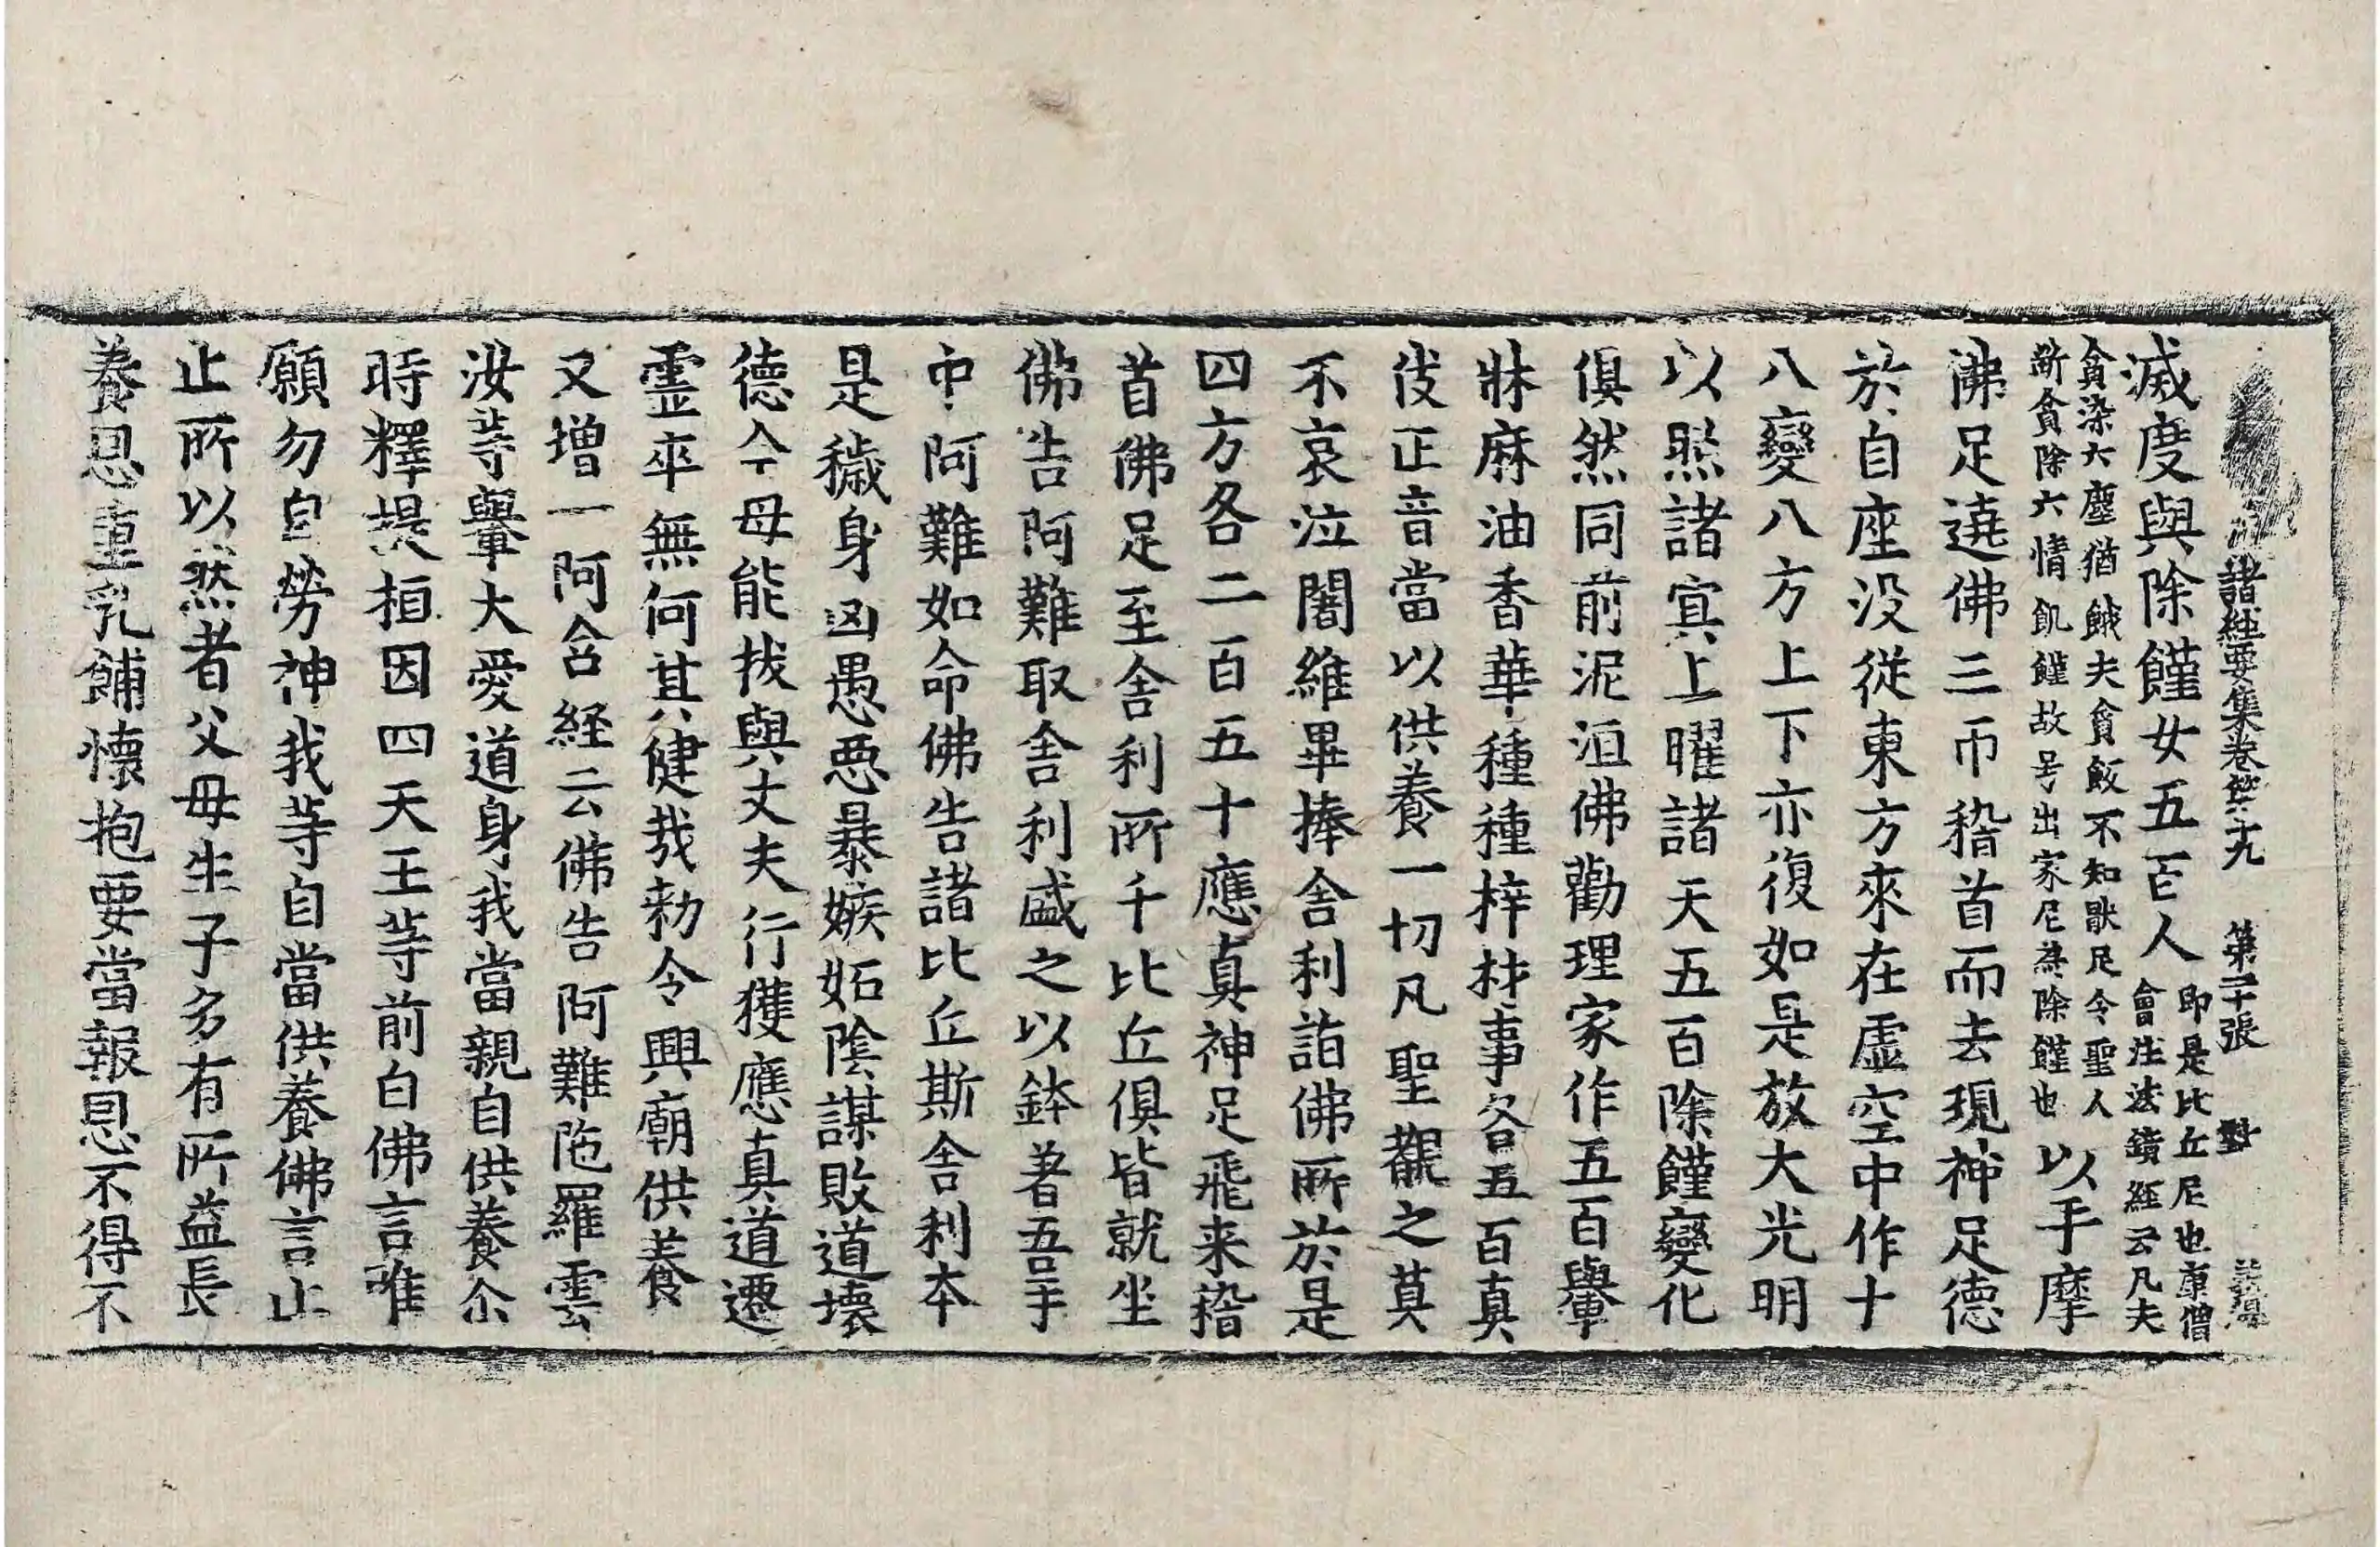 諸経要集卷第十九 第二十張 對
滅度與除饉女五百人即是比丘尼也康僧會注法鏡經云凡夫
貪染六塵猶餓夫貪飯不知猒足今聖人断貪除六情飢饉故号出家尼為除饉也以手摩
佛足遶佛三帀稽首而去現神足德
於自座没從東方來在虛空中作十
八變八方上下亦復如是放大光明
以照諸冥上曜諸天五百除饉變化
俱然同前泥洹佛勸理家作五百轝
牀麻油香華種種梓材事各五百真
伎正音當以供養一切凡聖覩之莫
不哀泣闍維畢捧舍利詣佛所於是
四方各二百五十應真神足飛来稽
首佛足至舍利所千比丘俱皆就坐
佛告阿難取舍利盛之以鉢著吾手
中阿難如命佛告諸比丘斯舍利本
是穢身凶愚惡暴嫉妬陰謀敗道壞
德今母能拔與丈夫行獲應真道遷
霊卒無何其健哉勑令興廟供養
又增一阿含経云佛告阿難陁羅雲
汝等轝大愛道身我當親自供養尒
時釋提桓因四天王等前白佛言唯
願勿自勞神我等自當供養佛言止
止所以然者父母生子多有所益長
養恩重乳餔懷抱要當報恩不得不